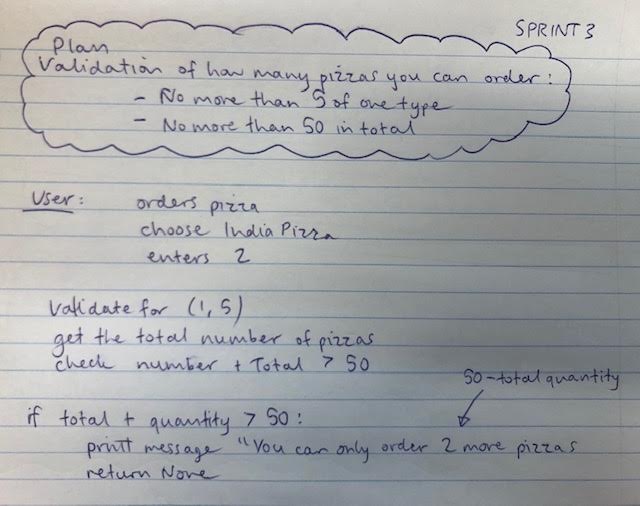 SPRINT 3
Plan
Validation of how many pizzas you can order:
- No more than 5 of one type
- No more than 50 in total
User: orders pizza
choose India Pizza
enters 2
Validate for (1, 5)
get the total number of pizzas
check number + Total > 50
50 - total quantity
if total + quantity > 50:
print message "You can only order 2 more pizzas
return None